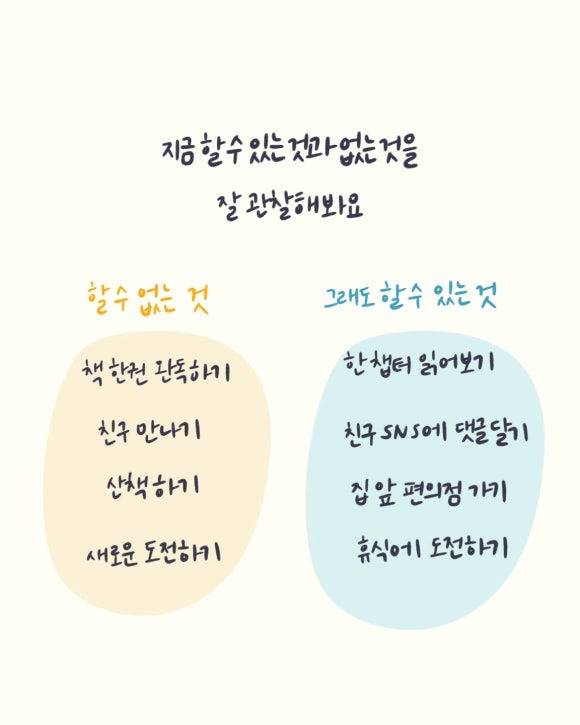 지금 할 수 있는 것과 없는 것을
잘 관찰해봐요
할 수 없는 것
책 한권 완독하기
친구 만나기
산책하기
새로운 도전하기
그래도 할 수 있는 것
한 챕터 읽어보기
친구 SNS에 댓글 달기
집 앞 편의점 가기
휴식에 도전하기